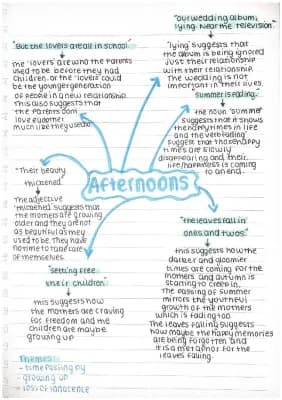 "our wedding album,
lying near the television"
"lying" suggests that
the album is being ignored
just their relationship
with their relationship.
The wedding is not
important in their lives.
"But the lovers are all in school"
The 'lovers' are who the parents
used to be before they had
children. or the 'lovers' could
be the younger generation
of people in a new relationship.
This also suggests that
the parents don't
love eachother
much like they used to.
"Summer is fading"
the noun "summer"
suggests that it shows
the happy times in life
and the verb "fading"
suggest that those happy
times are slowly
disappearing and their
life/happiness is coming
to an end.
Afternoons
"Their beauty
thickened"
The adjective
"thickened" suggests that
the mothers are growing
older and they are not
as beautiful as they
used to be. they have
no time to take care
of themselves.
"Setting free
their children"
this suggests how
the mothers are craving
for freedom and the
children are maybe
growing up
"the leaves fall in
ones and twos"
this suggests how the
darker and gloomier
times are coming for the
mothers and autumn is
starting to creep in.
The passing of summer
mirrors the youthful
growth of the mothers
which is fading too.
The leaves falling suggests
how maybe the happy memories
are being forgotten and
it is a metaphor for the
leaves falling.
Themes:
- time passing by
- growing up
- loss of innocence